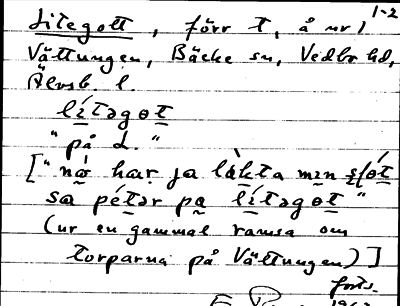 1-2
Litegott, förr t, å nr 1
Vättungen, Bäcke sn, Vedbo hd,
Älvsb. l.
lítəgot
"på L."
["nó har ja làkta min slót
sa pétər pa lítəgot"
(ur en gammal ramsa om
torparna på Vättungen)]
forts.